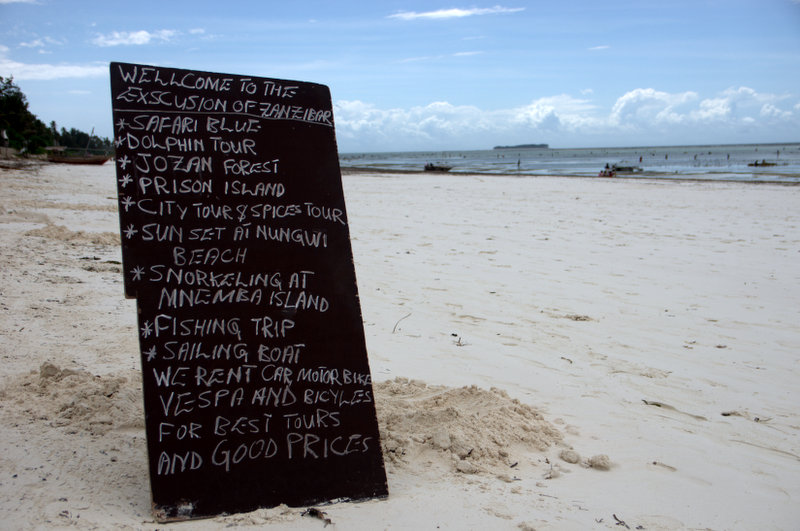 WELLCOME TO THE
EXSCUSION OF ZANZIBAR
*SAFARI BLUE
*DOLPHIN TOUR
*JOZAN FOREST
*PRISON ISLAND
*CITY TOUR & SPICES TOUR
*SUN SET AT NUNGWI
BEACH
*SNORKELING AT
MNEMBA ISLAND
*FISHING TRIP
*SAILING BOAT
WE RENT CAR MOTOR BIKE
VESPA AND BICYLES
FOR BEST TOURS
AND GOOD PRICES